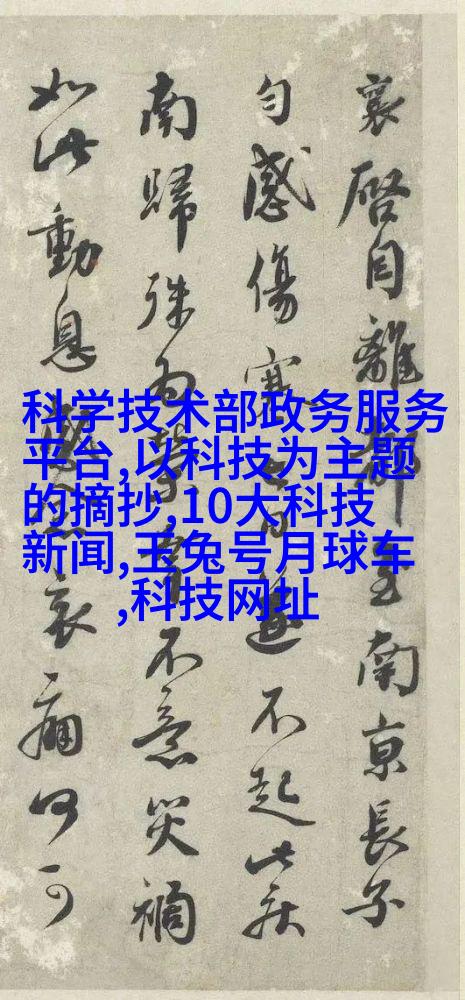 襄啓自離都至南京長子
勻感傷寒七日遂不起此疾
南歸殊為榮幸不意災禍
如此動息哀痛何可
科学技术部政务服务
平台,以科技为主题
的摘抄,10大科技
新闻,玉兔号月球车
,科技网址